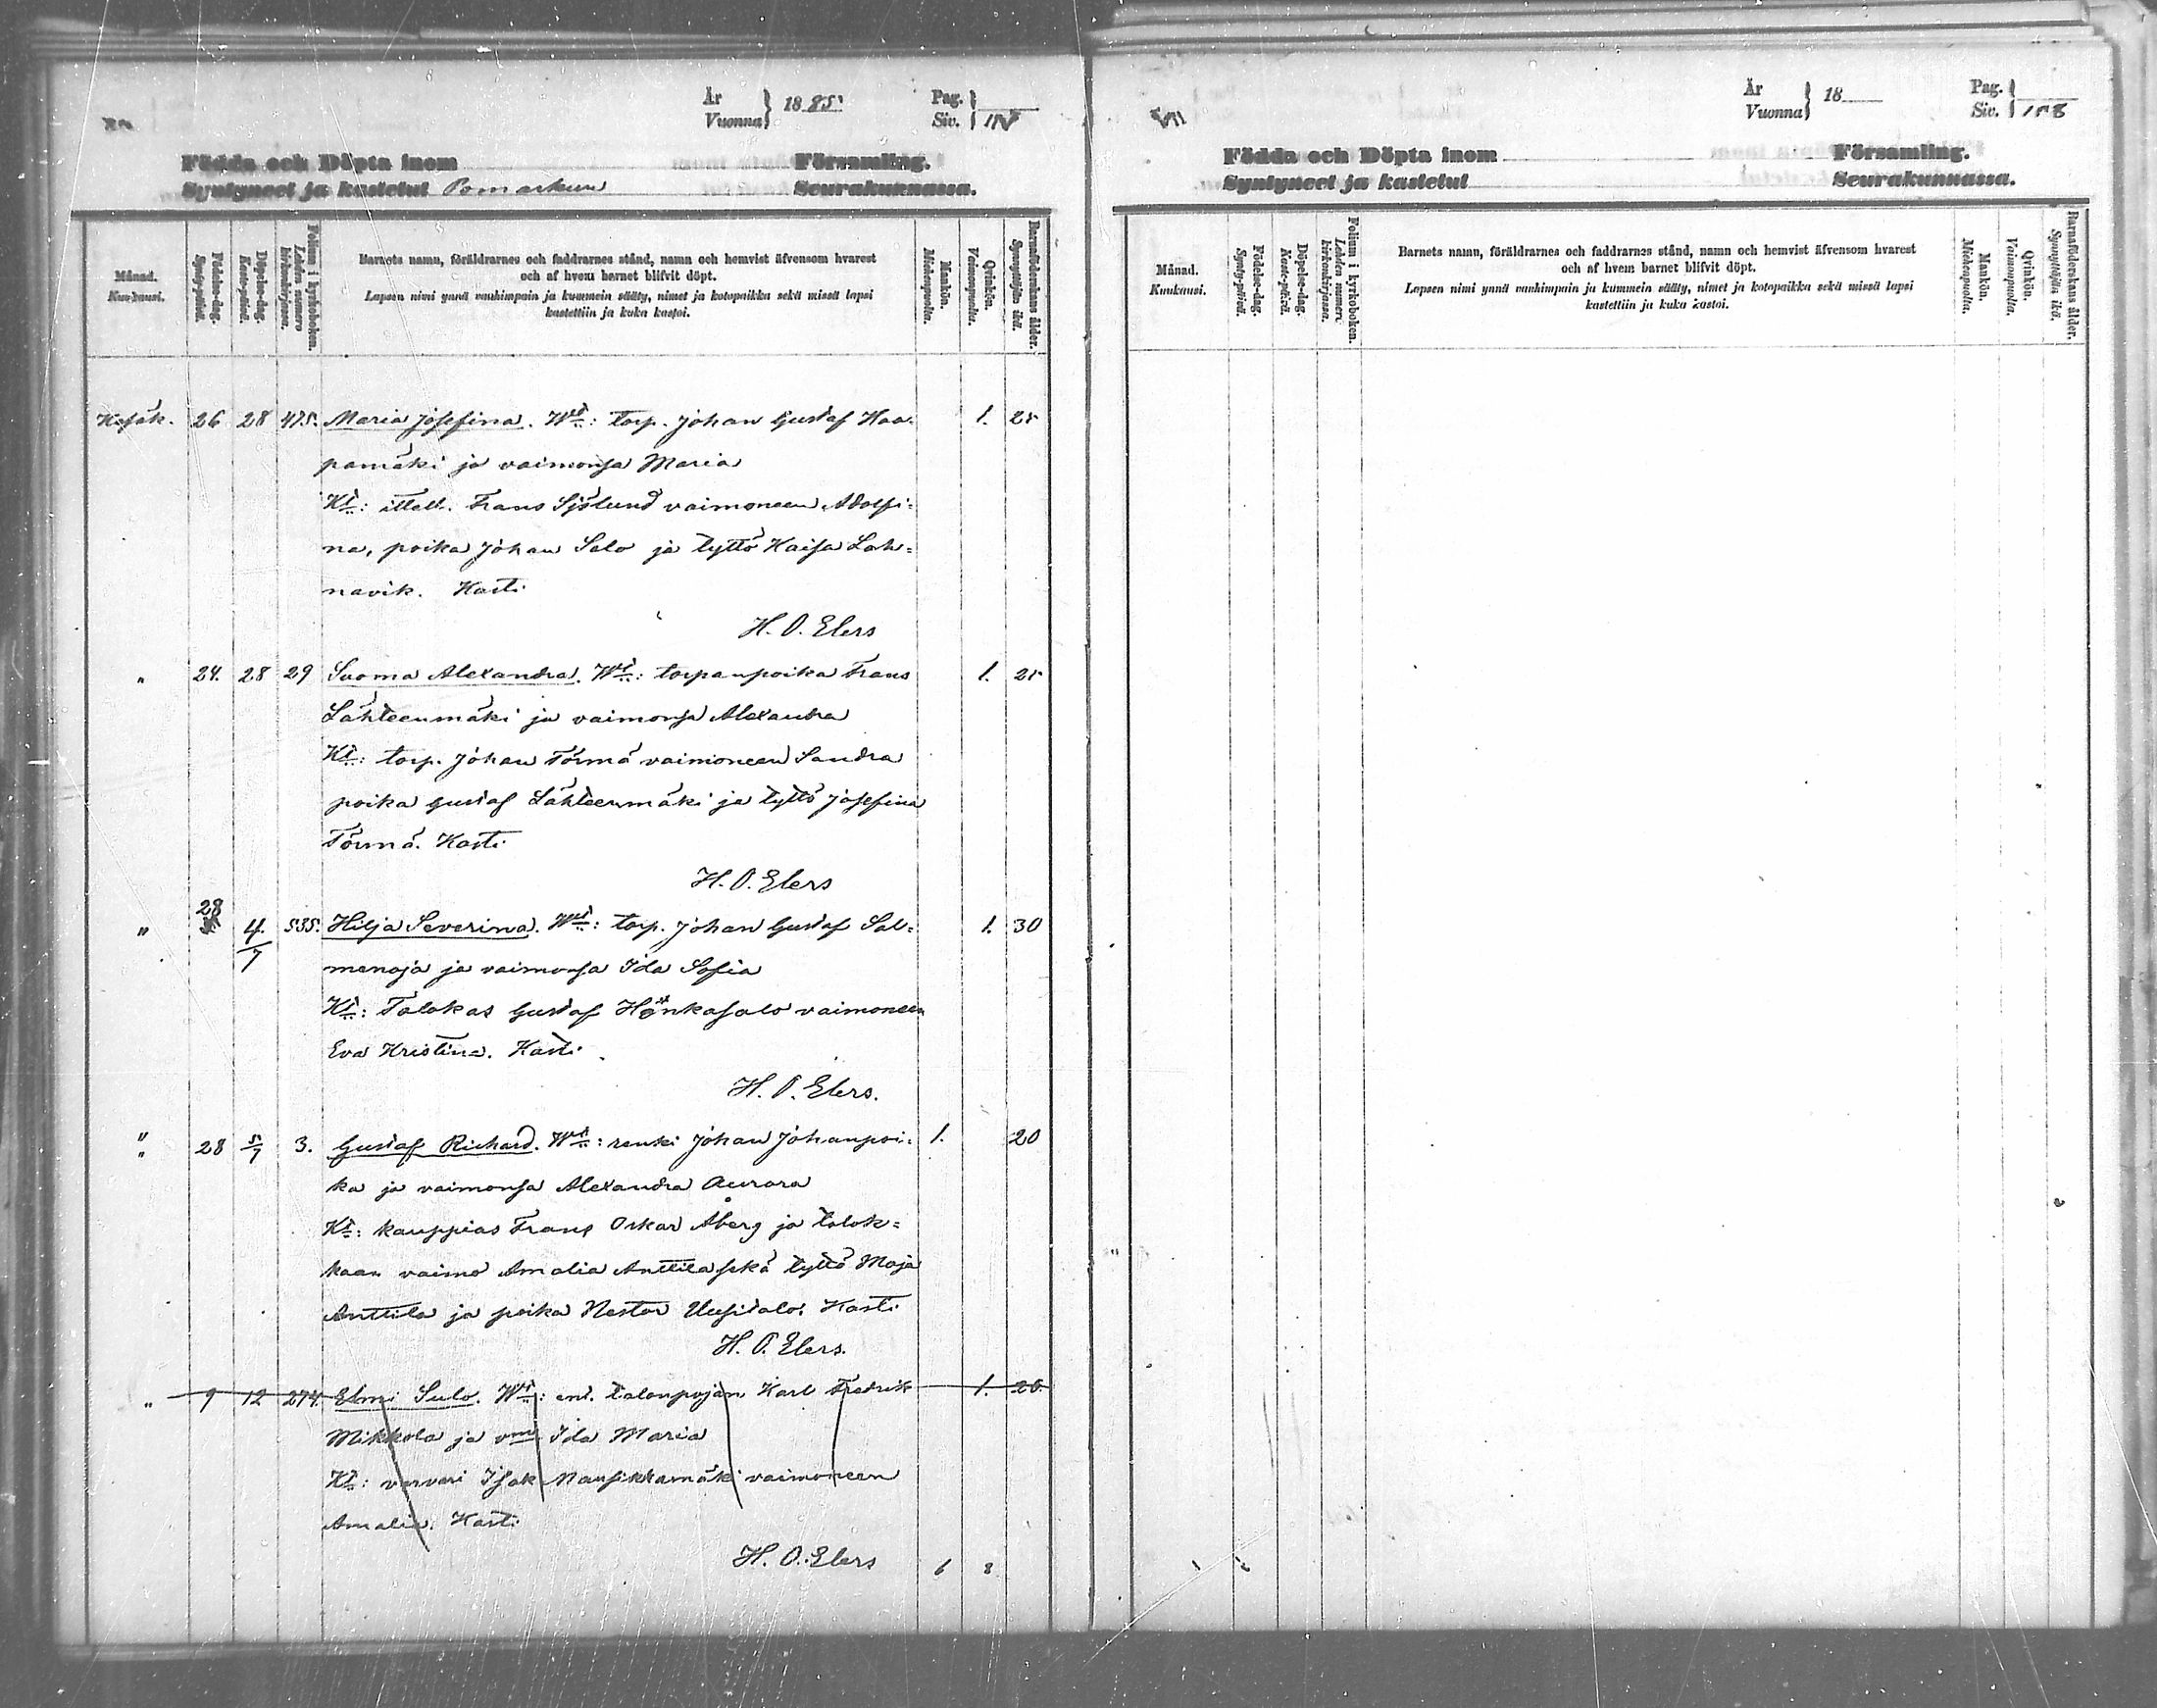 År
Vuonna } 1885
Pag.
Siv. }
Födda och Döpta inom Församling.
Syntyneet ja kastetut Pomarkun Seurakunnassa.
Månad.
Kuukausi.
Födelse-dag.
Synty-päivä.
Döpelse-dag.
Kaste-päivä.
Folium i kyrkoboken.
Lehden numero kirkonkirjassa.
Barnets namn, föräldrarnes och faddrarnes stånd, namn och hemvist äfvensom hvarest
och af hvem barnet blifvit döpt.
Lapsen nimi ynnä vanhimpain ja kummein sääty, nimet ja kotopaikka sekä missä lapsi
kastettiin ja kuka kastoi.
Mankön.
Miehenpuolta.
Qvinkön.
Vaimonpuolta.
Barnaföderskans ålder.
Synnyttäjän ikä.
Kesäk. 26 28 475. Maria Josefina. Wt: torp. Johan Gustaf Haa- 1. 25
pamäki ja vaimonsa Maria
Kt: itsell. Frans Sjölund vaimoneen Adolfi=
na, poika Johan Salo ja tyttö Kaisa Lah=
navik. Kasti
H. O. Elers
" 24. 28 29 Suoma Alexandra. Wt: torpanpoika Frans 1. 25
Lähteenmäki ja vaimonsa Alexandra
Kt: torp. Johan Törmä vaimoneen Sandra
poika Gustaf Lähteenmäki ja tyttö Josefina
Törmä. Kasti
H. O. Elers
" 28 4/7 535. Hilja Severina. Wt: torp. Johan Gustaf Sal= 1. 30
menoja ja vaimonsa Ida Sofia
Kt: Talokas Gustaf Honkasalo vaimoneen
Eva Kristina. Kasti
H. O. Elers.
" 28 5/7 3. Gustaf Richard. Wt: renki Johan Johanpoi= 1. 20
ka ja vaimonsa Alexandra Aurora
Kt: kauppias Frans Oskar Åberg ja talok=
kaan vaimo Amalia Anttila sekä tyttö Maja
Anttila ja poika Nestor Uusitalo. Kasti
H. O. Elers.
" 9 12 274. Elmi Sulo. Wt: ent. talonpojan Karl Fredrik 1. 26.
Mikkola ja vmo Ida Maria
Kt: värväri Isak Mansikkamäki vaimoneen
Amalia. Kasti
H. O. Elers 6 8
År
Vuonna } 18
Pag.
Siv. } 158
Födda och Döpta inom Församling.
Syntyneet ja kastetut Seurakunnassa.
Månad.
Kuukausi.
Födelse-dag.
Synty-päivä.
Döpelse-dag.
Kaste-päivä.
Folium i kyrkoboken.
Lehden numero kirkonkirjassa.
Barnets namn, föräldrarnes och faddrarnes stånd, namn och hemvist äfvensom hvarest
och af hvem barnet blifvit döpt.
Lapsen nimi ynnä vanhimpain ja kummein sääty, nimet ja kotopaikka sekä missä lapsi
kastettiin ja kuka kastoi.
Mankön.
Miehenpuolta.
Qvinkön.
Vaimonpuolta.
Barnaföderskans ålder.
Synnyttäjän ikä.